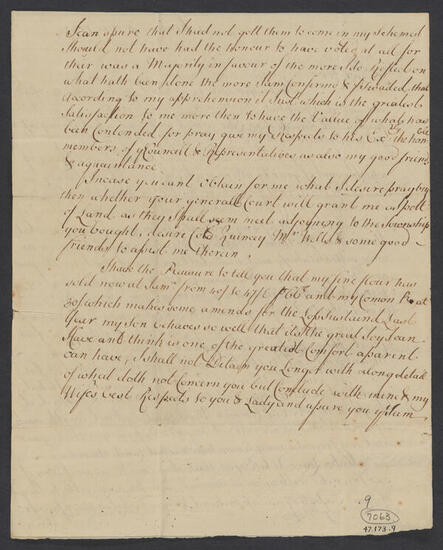 I can assure that I had not gott them to come in my schemed
Should not have had the honour to have voted at all for
ther was a Majority in favour of the more I do Reflect on
what hath been done the more I am Confirmed & perswaded that
according to my apprehension it Just which is the greatest
Satisfaction to me more then to have the Value of what has
been Contended for pray give my Respects to his Exc: the hon:ble
members of yr Councill & Representatives as also my good friends
& aquaintance
Incase you cant obtain for me what I desire pray try
then whether your generall Court will grant me a spott
of Land as they shall seem meet adjoyning to the Township
you bought, desire Coll Quincey Mr Wells & some good
friends to assist me therein.
I have the Pleasure to tell you that my fine flour has
sold now at from and my Comon at
30/ which makes some amends for the Loss Sustained Last
Year my son behaves so well that its the great Joys I can
Have and I think is one of the greatest Comfort a parent
can have, I shall not Detain you Longer with a long detail
of what doth not Concern you but Conclude with mine & my
Wifes best Respects to you & Lady and assure you yt I am
9
7063
47.173.9